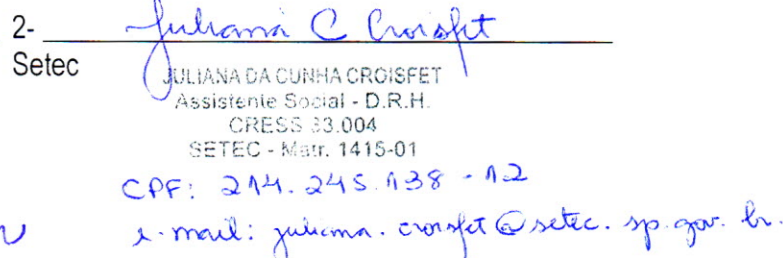 2- Juliana C Croisfet
Setec
JULIANA DA CUNHA CROISFET
Assistente Social - D.R.H.
CRESS 33.004
SETEC - Matr. 1415-01
CPF: 214.245.138-12
e-mail: juliana.croisfet@setec.sp.gov.br.